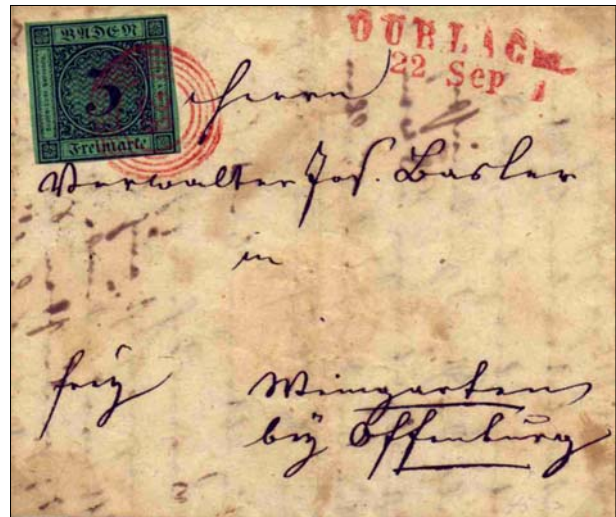 BADEN
3
Freimarke
DURLACH
22 Sep
Herrn
Verwalter Jos. Basler
in
frey
Weingarten
bey Offenburg